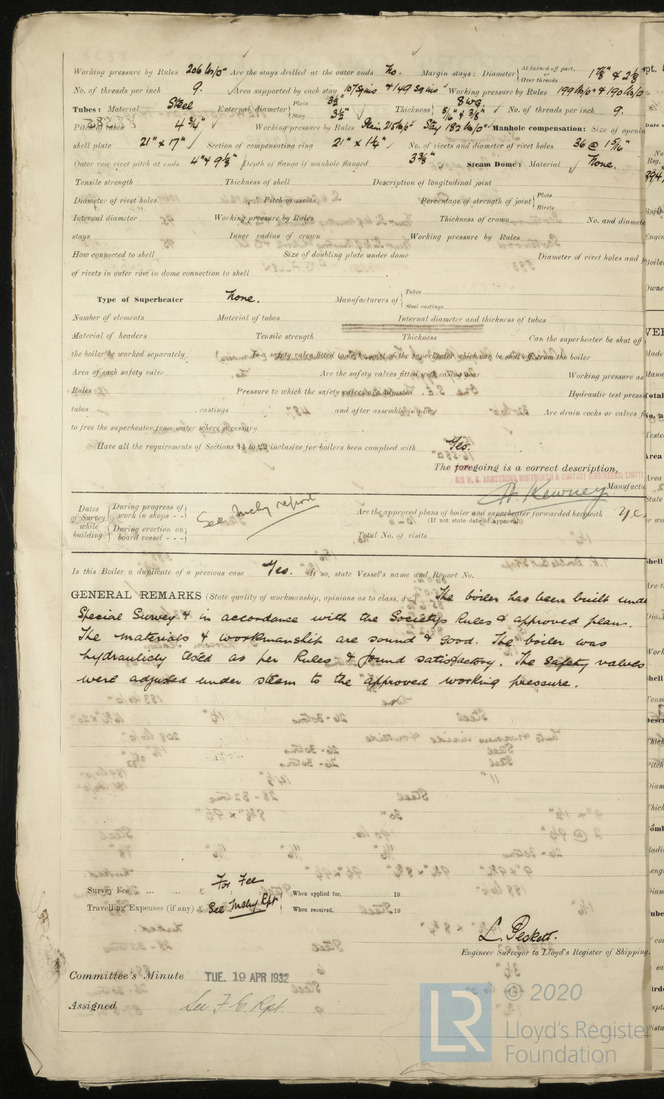 Working pressure by Rules 206 lbs/□" Are the stays drilled at the outer ends No. Margin stays: Diameter { At turned off part, or Over threads 1 7/8" & 2
No. of threads per inch 9. Area supported by each stay 107 sq ins & 149 sq ins Working pressure by Rules 199 lbs/□" & 190 lbs/□"
Tubes: Material Steel External diameter { Plain 3½" Stay 3½" Thickness { 8 wg 5/16" & 3/8" No. of threads per inch 9.
4 3/4" Working pressure by Rules Plain 215 lbs/□" Stay 182 lbs/□" Manhole compensation: Size of opening
shell plate 21" x 17" Section of compensating ring 21" x 1¼" No. of rivets and diameter of rivet holes 36 @ 1 5/16"
Outer row rivet pitch at ends 4" & 9 Depth of flange if manhole flanged 3 3/8" Steam Dome: Material None.
Tensile strength Thickness of shell Description of longitudinal joint
Diameter of rivet holes Pitch of rivets Percentage of strength of joint { Plate Rivets
Internal diameter Working pressure by Rules Thickness of crown No. and diamete
stays Inner radius of crown Working pressure by Rules
How connected to shell Size of doubling plate under dome Diameter of rivet holes and p
of rivets in outer row in dome connection to shell
Type of Superheater None. Manufacturers of { Tubes Steel castings
Number of elements Material of tubes Internal diameter and thickness of tubes
Material of headers Tensile strength Thickness Can the superheater be shut off
the boiler be worked separately Is a safety valve fitted to every part of the superheater which can be shut off from the boiler
Area of each safety valve Are the safety valves fitted with easing gear Working pressure as
Rules Pressure to which the safety valves are adjusted Hydraulic test press
tubes castings and after assembly in place Are drain cocks or valves f
to free the superheater from water where necessary
Have all the requirements of Sections 14 to 22 inclusive for boilers been complied with Yes.
The foregoing is a correct description,
SIR W. G. ARMSTRONG WHITWORTH & COMPANY (ENGINEERS) LIMITED
Manufactu
Dates of Survey while building { During progress of work in shops - - During erection on board vessel - - - See Mchy report Are the approved plans of boiler and superheater forwarded herewith Yes
(If not state date of approval)
Total No. of visits
Is this Boiler a duplicate of a previous case Yes. If so, state Vessel's name and Report No.
GENERAL REMARKS (State quality of workmanship, opinions as to class, &c. The boiler has been built unde
Special Survey & in accordance with the Society's Rules & approved plan.
The materials & workmanship are sound & good. The boiler was
hydraulicly tested as per Rules & found satisfactory. The safety valves
were adjusted under steam to the approved working pressure.
Survey Fee ... ... £ For Fee When applied for, 19
Travelling Expenses (if any) £ See Mchy Rpt When received, 19
L. Peskett.
Engineer Surveyor to Lloyd's Register of Shipping.
Committee's Minute TUE. 19 APR 1932
Assigned See F.E. Rpt
LR © 2020
Lloyd's Register
Foundation